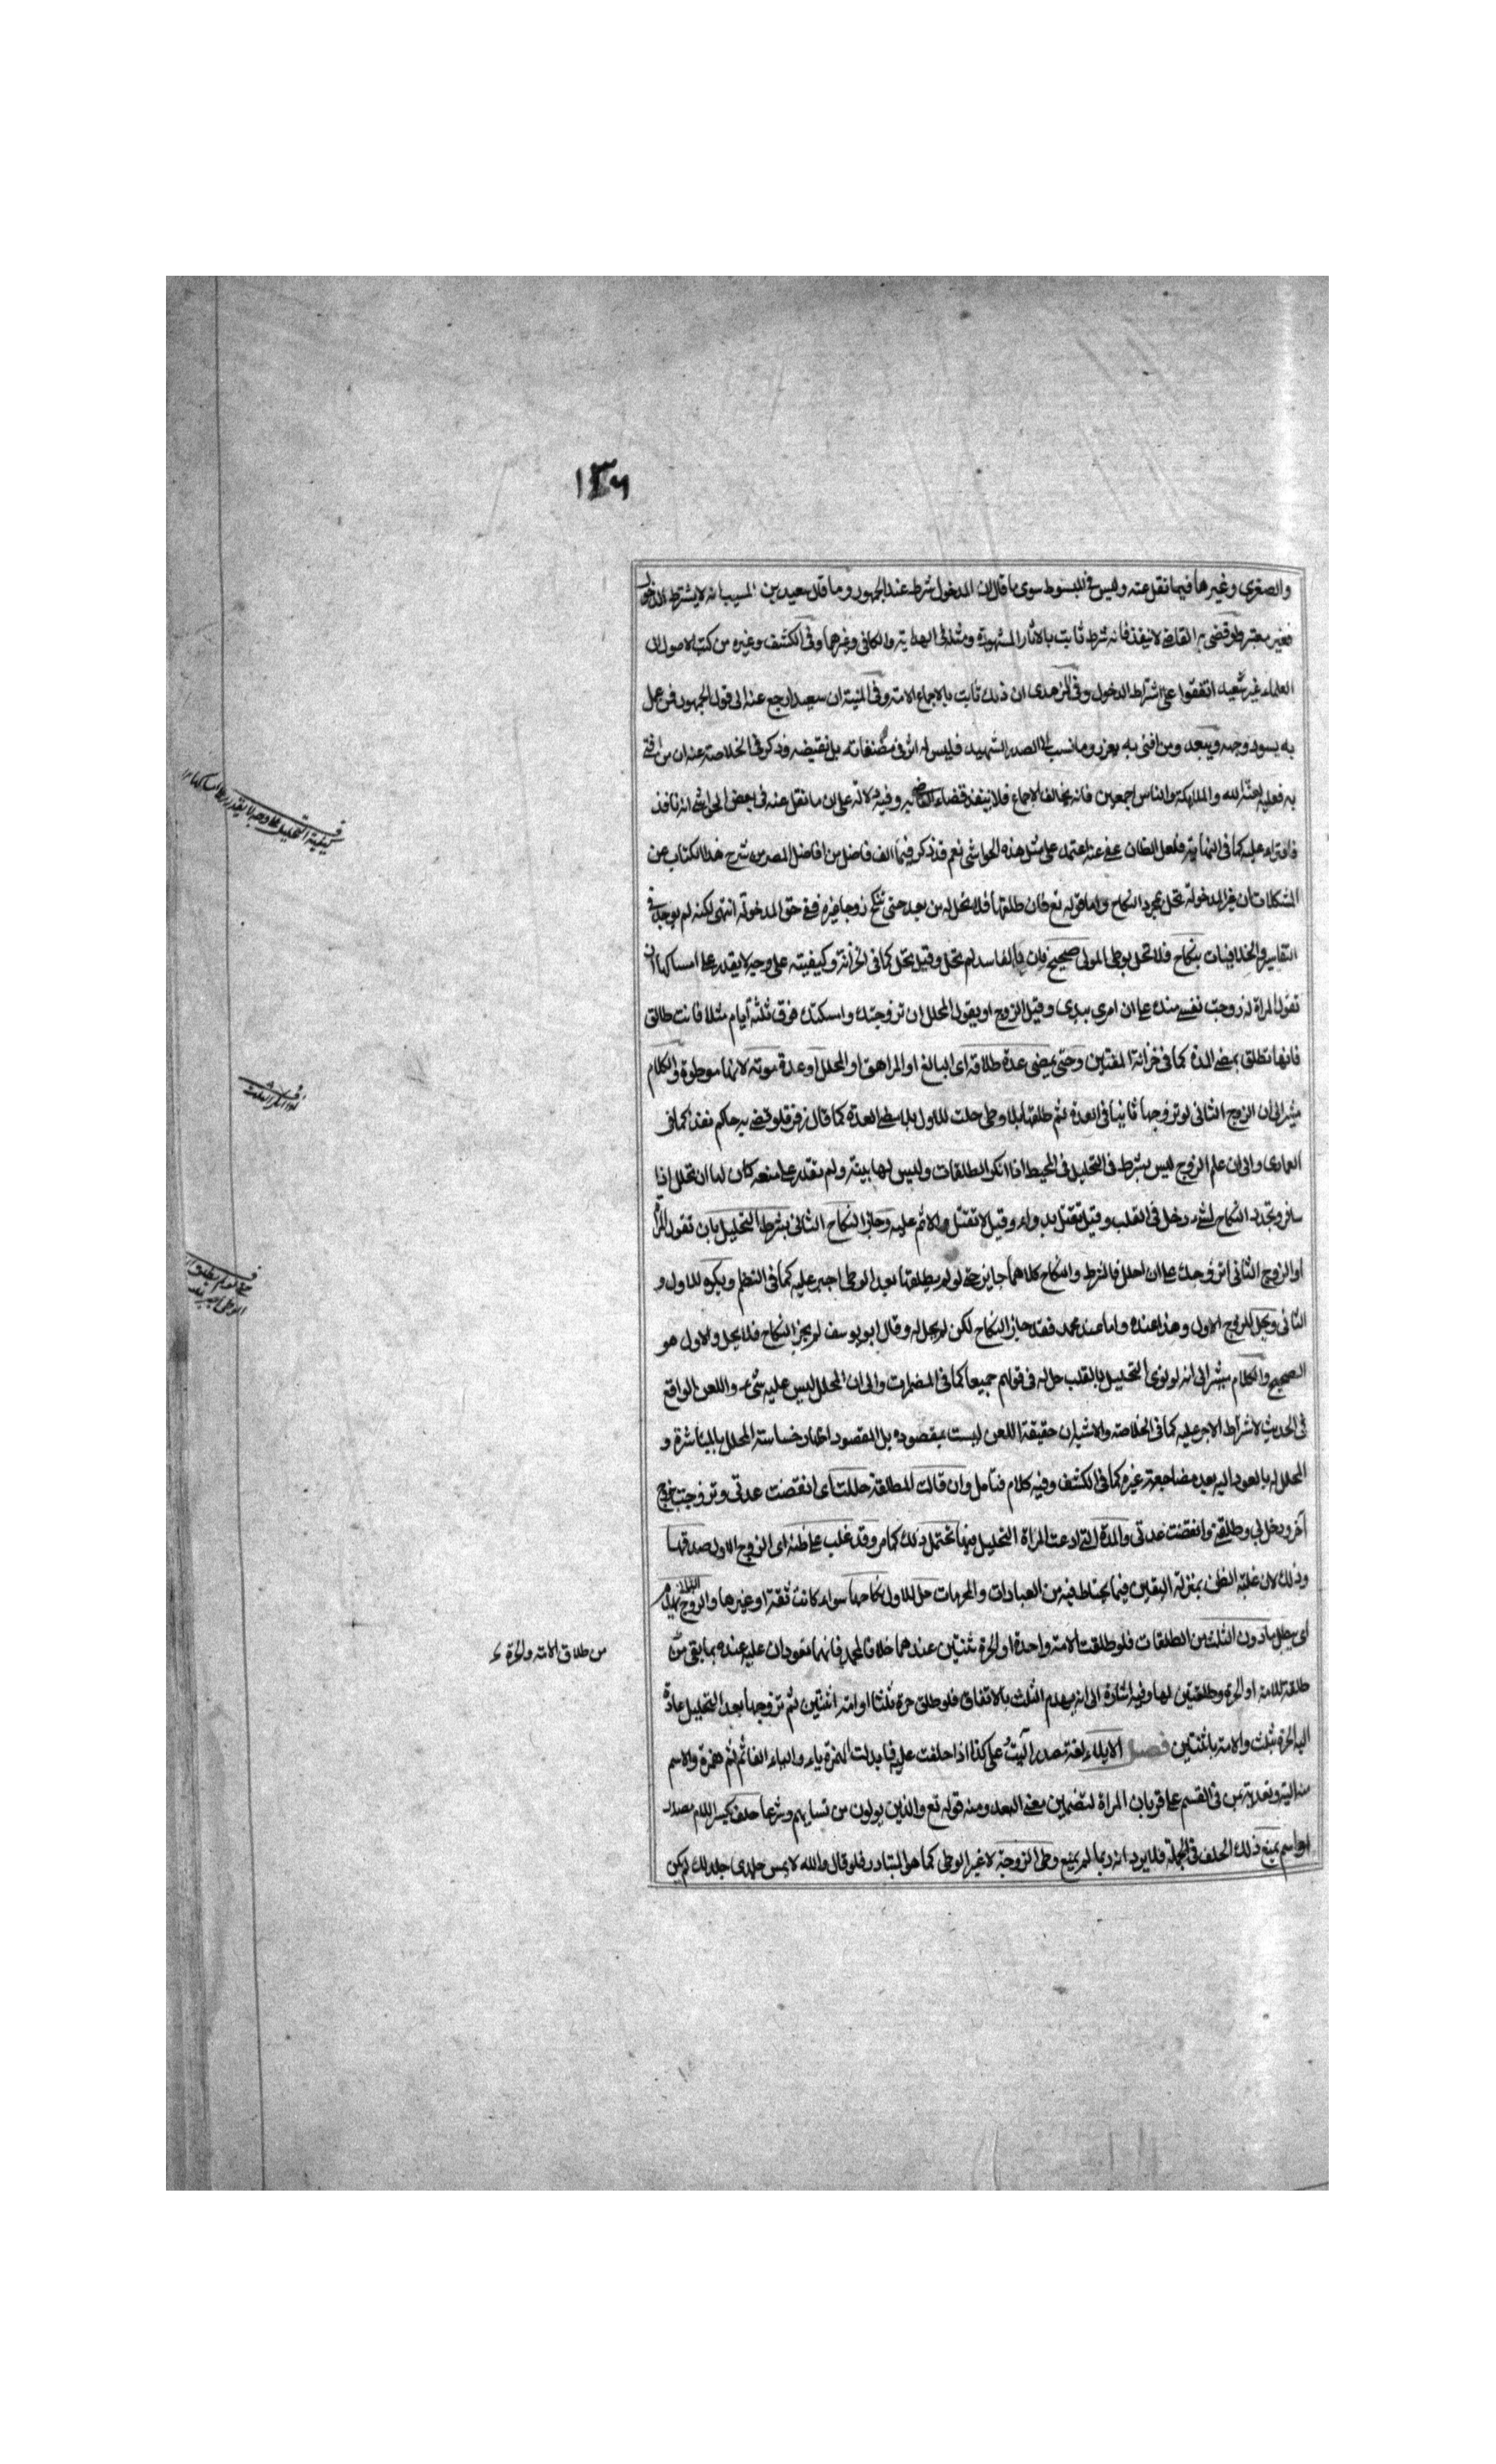 ١٣٦
والصغرى وغيرها فيما نقل عنه وليس في المبسوط سوى ما قال ان الدخول شرط عند الجمهور وما قال سعيد بن المسيب انه لا يشترط الدخول
فغير معتبر ولو قضى به القاضى لا ينفذ فانه شرط ثابت بالاثار المشهورة ومثله فى الهداية والكافى وغيرها وفى الكشف وغيره من كتب الاصول ان
العلماء غير سعيد اتفقوا على اشتراط الدخول وفى الزهدى ان ذلك ثابت باجماع الامة وفى المنية ان سعيدا رجع عنه الى قول الجمهور فمن عمل
به يسود وجهه ويبعد ومن افتى به يعزر وما نسب الى الصدر الشهيد فليس له اثر فى مصنفاته بل نقيضه وذكر فى الخلاصة عنه ان من افتى
به فعليه لعنة الله والملائكة والناس اجمعين فانه مخالف الاجماع فلا ينفذ قضاء القاضى به وفيه دلالة على ان ما نقل عنه فى بعض الحواشى انه نافذ
فافتراء عليه كما فى النهاية ولعل الظان عفى عنه اعتمد على مثل هذه الحواشى نعم قد ذكر فيما الف فاضل من افاضل المصر من شرح هذا الكتاب من
المشكلات ان غير المدخولة تحل بمجرد النكاح واما قوله تع فان طلقها فلا تحل له من بعد حتى تنكح زوجا غيره ففى حق المدخولة انتهى لكنه لم يوجد فى
التفاسير والخلافيات بنكاح فلا تحل بوطى المولى صحيح فان بالفاسد لم تحل وقيل تحل كما فى الخزانة وكيفيته على وجه لا يقدر على امساكها ان
تقول المراة زوجت نفسى منك على ان امرى بيدى وقبل الزوج او يقول المحلل ان تزوجتك وامسكتك فوق ثلثة أيام مثلا فانت طالق
فانها تطلق بمضى المدة كما فى خزانة المفتين وحتى يمضى عدة طلاقه اى البالغ او المراهق او المحلل او عدة موته لانها موطوة والكلام
مشير الى ان الزوج الثانى لو تزوجها ثانيا فى العدة ثم طلقها بلا وطى حلت للاول بلا مضى العدة كما قال زفر فلو قضى به حاكم نفذ كما فى
العمادى والى ان علم الزوج ليس بشرط فى التحليل فى المحيط اذا انكر الطلقات وليس لها بينة ولم تقدر على منعه كان لها ان تحلل اذا
سافر وتجدد النكاح لشئ دخل فى القلب وقيل تقتل بدواء وقيل لا تقتل والاثم عليه وجاز النكاح الثانى بشرط التحليل بان تقول المراة
او الزوج الثانى اتزوجك على ان احلل فالشرط والنكاح كلاهما جايز حتى لو لم يطلقها بعد الوطى اجبر عليه كما فى النظم ويكره للاول و
الثانى ويحل للزوج الاول وهذا عنده واما عند محمد فقد جاز النكاح لكن لم يحل له وقال ابو يوسف لم يجز النكاح فلا يحل والاول هو
الصحيح والكلام مشير الى انه لو نوى التحليل بالقلب حل له فى قولهم جميعا كما فى المضمرات والى ان المحلل ليس عليه شئ واللعن الواقع
فى الحديث لاشتراط الاجر عليه كما فى الخلاصة والاشبه ان حقيقة اللعن ليست بمقصودة بل المقصود اظهار خساسة المحلل بالمباشرة و
المحلل له بالعود اليه بعد مضاجعة غيره كما فى الكشف وفيه كلام فتامل وان قالت المطلقة حللت اى انقضت عدتى وتزوجت بزوج
آخر ودخل بى وطلقنى وانقضت عدتى والمدة التى ادعت المراة التحليل فيها تحتمل ذلك كما مر وقد غلب على ظنه اى الزوج الاول صدقها
وذلك لان غلبة الظن بمنزلة اليقين فيما يحتاط فيه من العبادات والحرمات حل للاول نكاحها سواء كانت ثقة او غيرها والزوج الثانى يهدم
اى يبطل ما دون الثلث من الطلقات فلو طلقت الامة واحدة او الحرة ثنتين عندهما خلافا لمحمد فانهما تعودان عليه عنده بما بقى من
طلقة للامة او الحرة وطلقتين لها وفيه اشارة الى انه يهدم الثلث بالاتفاق فلو طلق حرة ثلثا او امة اثنتين ثم تزوجها بعد التحليل عادة
اليه الحرة بثلث والامة باثنتين فصل الايلاء لغة مصدر آليت على كذا اذا حلفت عليه فابدلت الهمزة ياء والياء الفا ثم همزة والاسم
منه الية وتعديته بمن فى القسم على قربان المراة لتضمين معنى البعد ومنه قوله تع والذين يولون من نسايهم وشرعا حلف بكسر اللام مصدر
او اسم يمنع ذلك الحلف فى الجملة فلا يرد انه ربما لم يمنع وطى الزوجة لا غير الوطى كما هو المتبادر فلو قال والله لا يمس جلدى جلدك لم يكن
كيفية التحليل على وجه لا يقدر على امساكها
من طلاق الامة والحرة